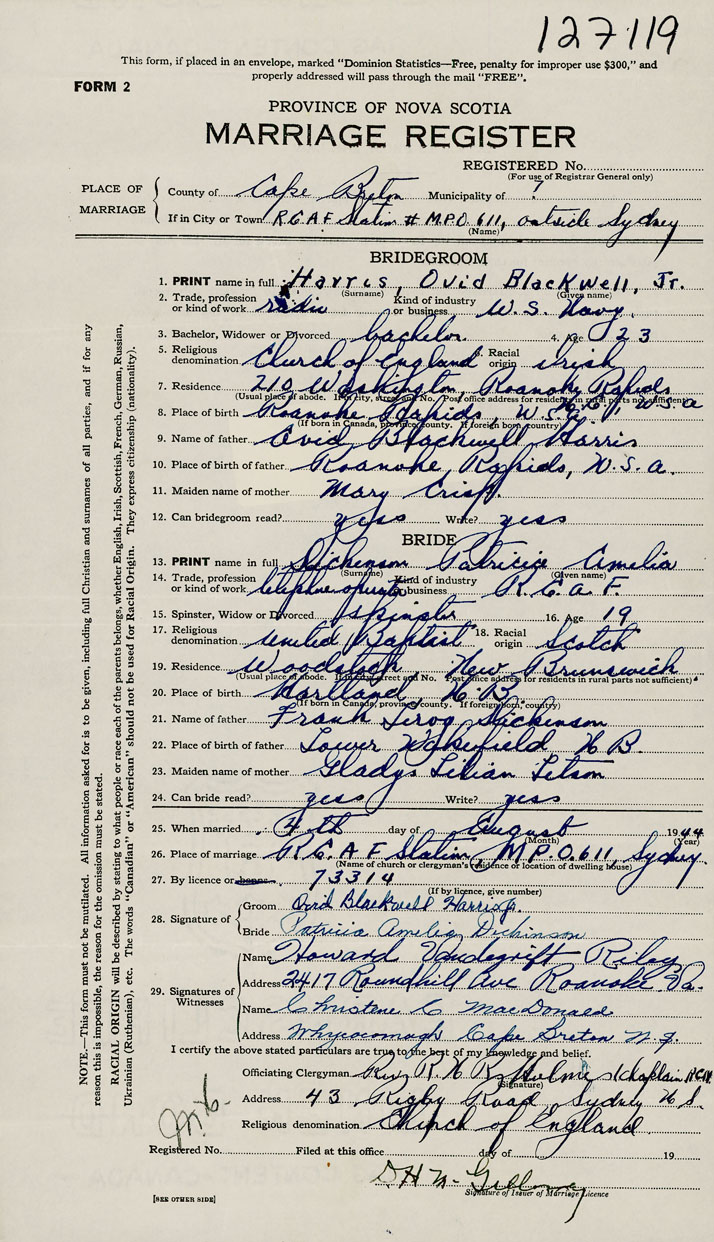 127119
This form, if placed in an envelope, marked "Dominion Statistics—Free, penalty for improper use $300," and
properly addressed will pass through the mail "FREE".
FORM 2
PROVINCE OF NOVA SCOTIA
MARRIAGE REGISTER
REGISTERED No.
(For use of Registrar General only)
PLACE OF MARRIAGE
County of Cape Breton Municipality of 7
If in City or Town R.C.A.F Station # M.P.O 611, outside Sydney
(Name)
BRIDEGROOM
1. PRINT name in full Harris, Ovid Blackwell, Jr.
(Surname) (Given name)
2. Trade, profession or kind of work radio Kind of industry or business U.S. Navy
3. Bachelor, Widower or Divorced bachelor 4. Age 23
5. Religious denomination Church of England 6. Racial origin irish
7. Residence 210 Washington, Roanoke Rapids
(Usual place of abode. If in city, street and No. Post office address for residents in rural parts not sufficient)
8. Place of birth Roanoke Rapids, U.S.A.
(If born in Canada, province, county. If foreign born, country)
9. Name of father Ovid Blackwell Harris
10. Place of birth of father Roanoke Rapids, U.S.a.
11. Maiden name of mother Mary Crisp.
12. Can bridegroom read? yess Write? yess
BRIDE
13. PRINT name in full Dickenson Patricia Amelia
(Surname) (Given name)
14. Trade, profession or kind of work telephone operator Kind of industry or business R.C.A.F.
15. Spinster, Widow or Divorced spinster 16. Age 19
17. Religious denomination United Baptist 18. Racial origin Scotch
19. Residence Woodstock, New Brunswick
(Usual place of abode. If in city, street and No. Post office address for residents in rural parts not sufficient)
20. Place of birth Hartland, N.B.
(If born in Canada, province, county. If foreign born, country)
21. Name of father Frank Dickinson
22. Place of birth of father Lower Wakefield N B.
23. Maiden name of mother Gladys Lilian
24. Can bride read? yess Write? yess
25. When married 4th day of August 1944
(Month) (Year)
26. Place of marriage R.C.A F Station, M.P.O.611, Sydney.
(Name of church or clergyman's residence or location of dwelling house)
27. By licence or banns 73314
(If by licence, give number)
28. Signature of
Groom Ovid Blackwell Harris Jr.
Bride Patricia Amelia Dickinson
29. Signatures of Witnesses
Name Howard Vandegrift Riley
Address 2417 Roundhill Ave Roanoke Va.
Name Christene C MacDonald
Address Whycocomagh Cape Breton N.S.
I certify the above stated particulars are true to the best of my knowledge and belief.
Officiating Clergyman Rev. R. H. R. Holmes (Chaplain RCN)
(Signature)
Address 43 Rigby Road, Sydney N S.
Religious denomination Church of England
Registered No. Filed at this office day of 19
D H
Signature of Issuer of Marriage Licence
[SEE OTHER SIDE]
NOTE.—This form must not be mutilated. All information asked for is to be given, including full Christian and surnames of all parties, and if for any
reason this is impossible, the reason for the omission must be stated.
RACIAL ORIGIN will be described by stating to what people or race each of the parents belongs, whether English, Irish, Scottish, French, German, Russian,
Ukrainian (Ruthenian), etc. The words "Canadian" or "American" should not be used for Racial Origin. They express citizenship (nationality).